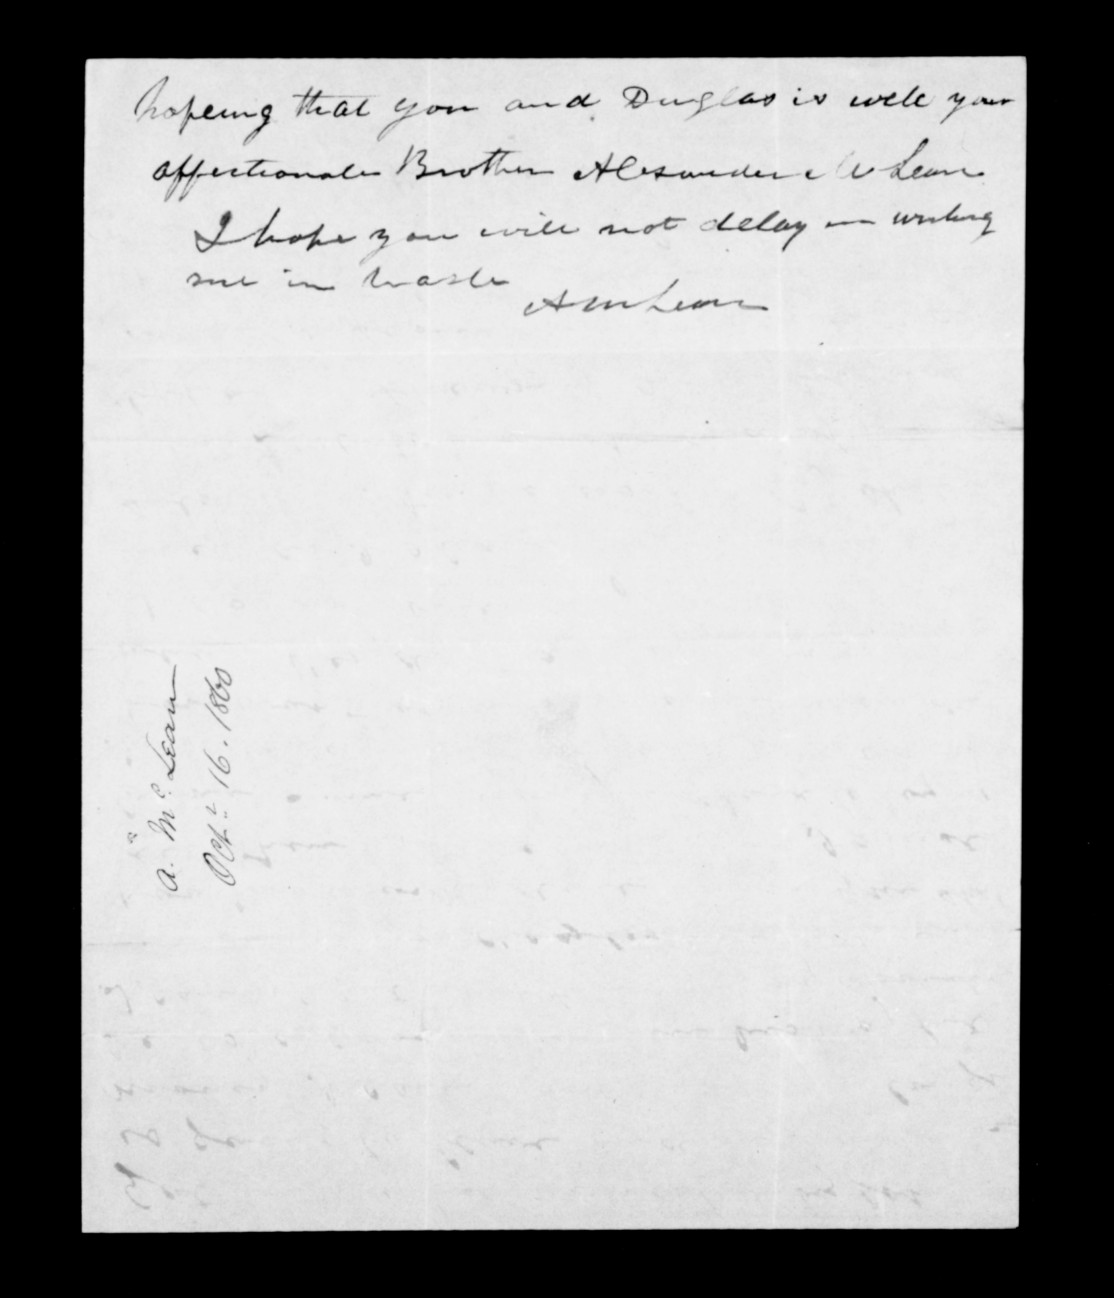 hopeing that you and Duglas is well your
affectionate Brother Alexander McLean
I hope you will not delay in writing
me in haste
A McLean
A. McLean
Octr 16. 1860